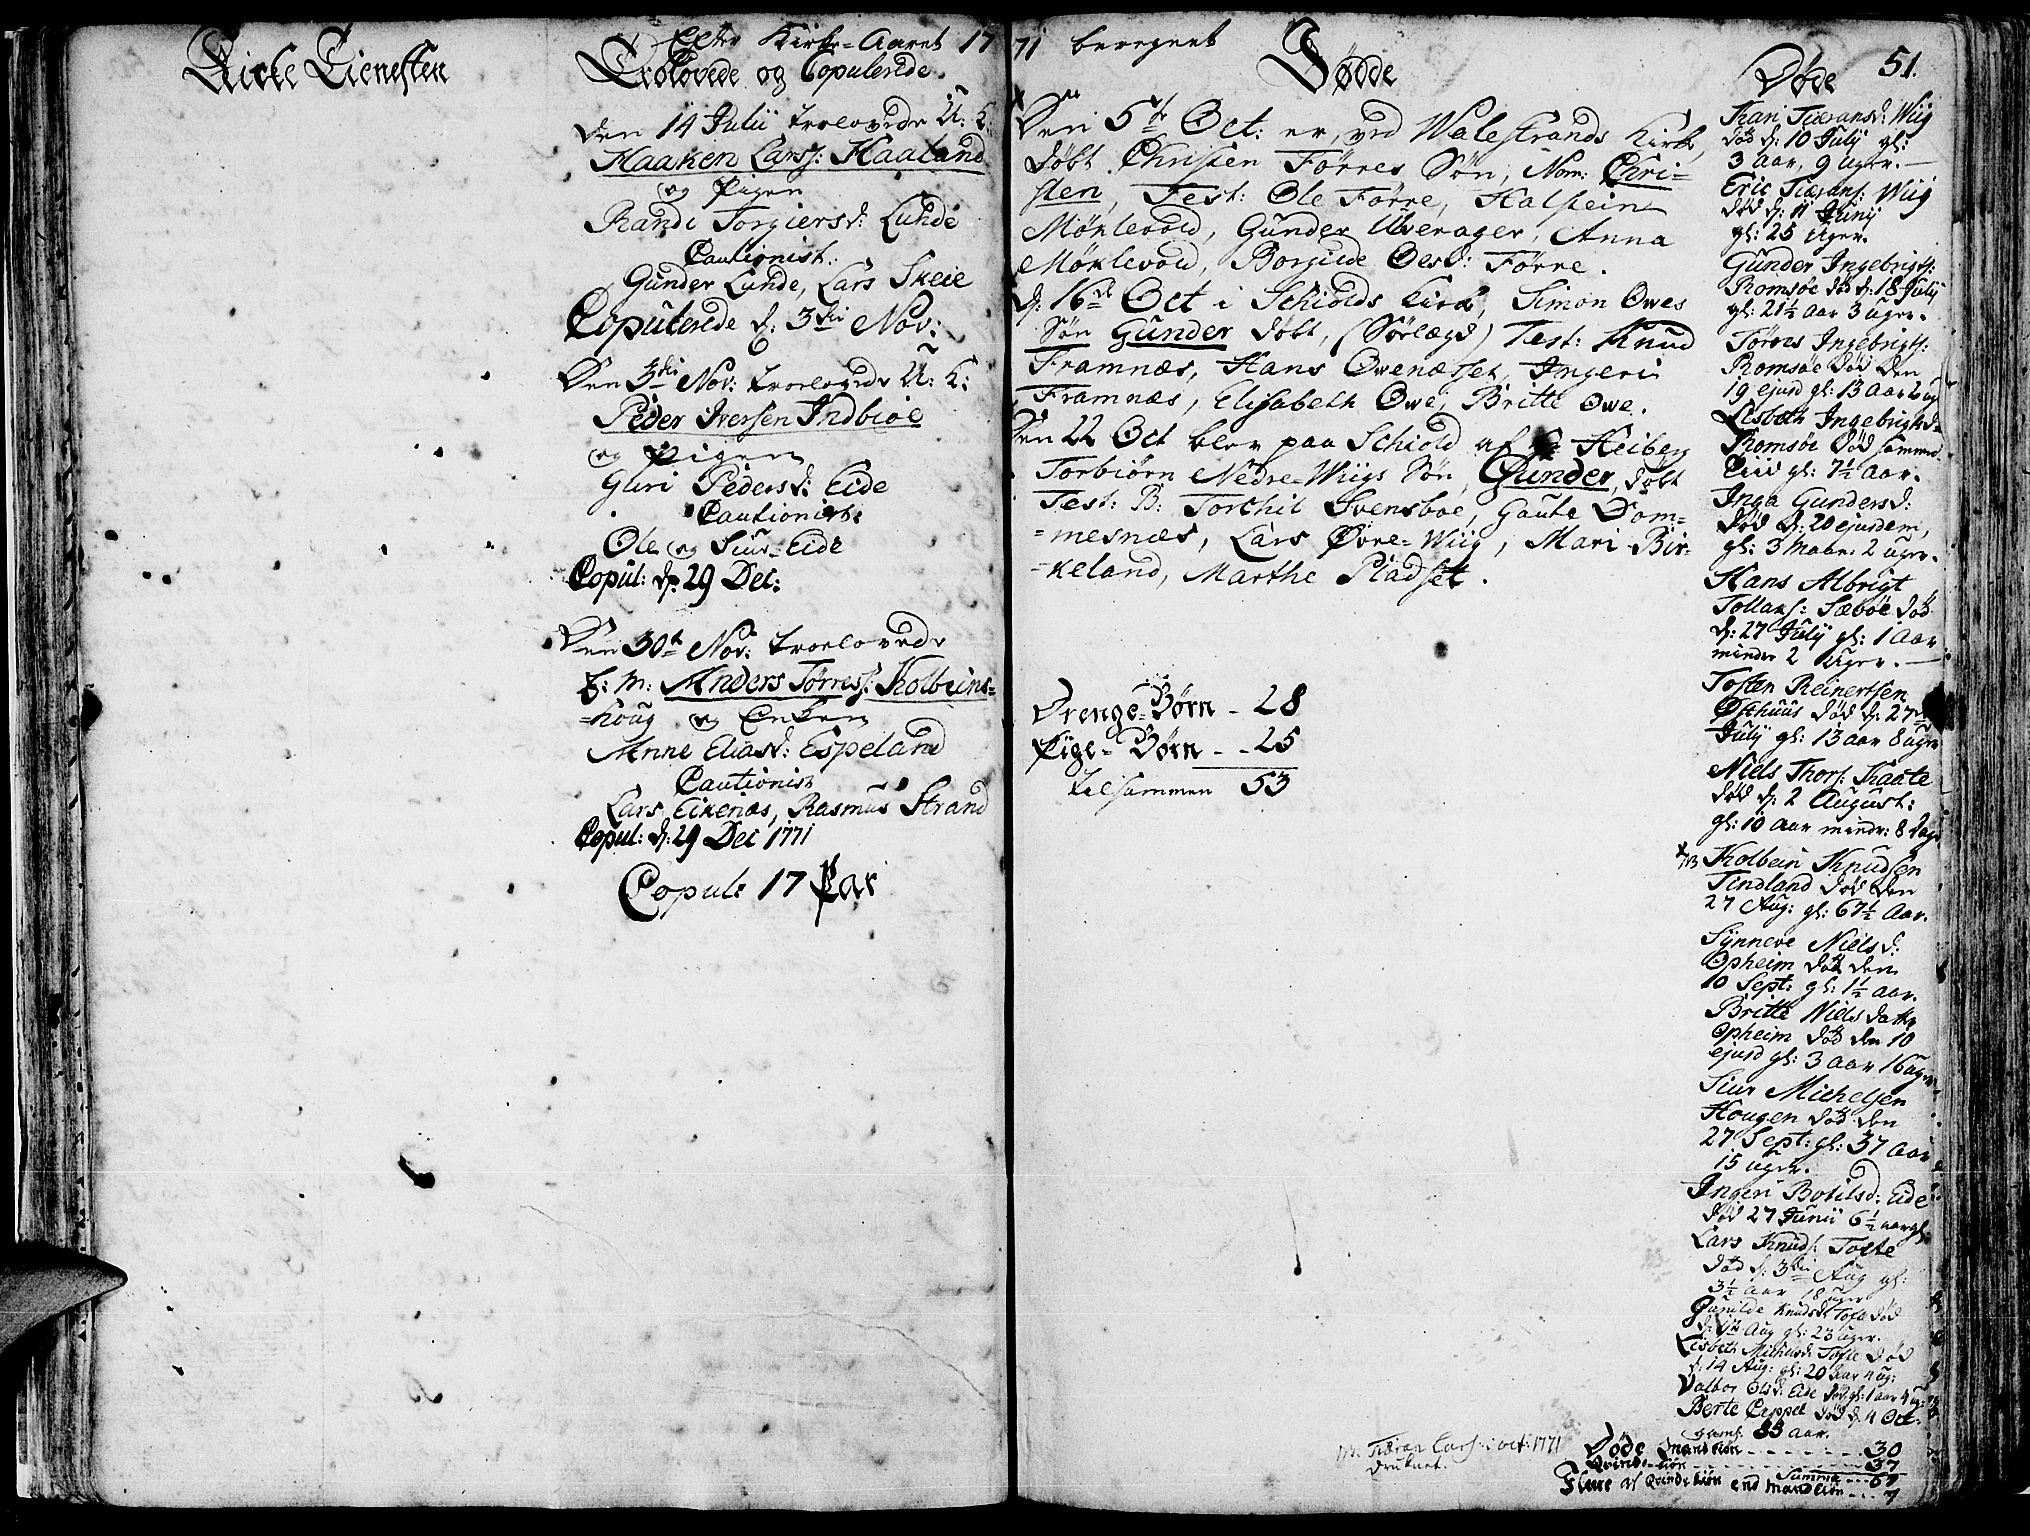 Efter Kirke-Aaret 1771 beregnet
51.
Kirke Tienesten
Trolovede og Copulerede.
Den 14 Julii troelovede U: K:
Haaken Larss: Haaland
og Pigen
Randi Torgiersd: Lunde
Cautionist:
Gunder Lunde, Lars Skeie
Copulerede d: 3die Nov:
Den 3die Nov: troelovede U: K:
Peder Iversen Indbiøe
og Pigen
Guri Pedersd: Eide
Cautionist:
Ole og Siur Eide
Copul: d: 29 Dec:
Den 30te Nov: troelovede
E: M: Anders Tørress: Kolbeins=
=houg og Enken
Anne Eliasd: Espeland
Cautionist
Lars Eikenæs, Rasmus Strand
Copul: d: 29 Dec 1771
Copul: 17 Par
Fødde
Den 5te Oct: er, ved Walestrands Kirke,
døbt Christen Førres Søn, Nom: Chri=
sten, Test: Ole Førre, Halstein
Møklevold, Gunder Uverager, Anna
Møklevold, Borgilde Olsd: Førre.
d: 16de Oct i Schiolds Kirke, Simon Owes
Søn Gunder døbt, (Sørlægd) Test: Knud
Framnæs, Hans Ovenæsset, Ingeri
Framnæs, Elisabeth Owe, Britte Owe.
Den 22 Oct blev paa Schiold af Hr Heiberg
Torbiørn Nedre-Wiigs Søn, Gunder, døbt
Test: B: Torchil Svensboe, Gaute Dom=
=mesnæs, Lars Øvre-Wiig, Mari Bir=
=keland, Marthe Pladset.
Drenge-Børn - 28
Pige-Børn - - 25
tilsammen 53
Døde
Kari Tiæransd: Wiig
død d: 10 July gl:
3 Aar, 9 uger.
Eric Tiærans: Wiig
død d: 11 Juny
gl: 25 Uger.
Gunder Ingebrigts:
Romsøe død d: 18 July
gl: 21½ Aar 3 uger.
Tørres Ingebrigts:
Romsøe død den
19 ejusd gl: 13 Aar 2 ug
Lisbeth Ingebrigtsd:
Romsøe død sammed
gl: 7½ Aar.
Inga Gundersd:
død d: 20 ejusdem,
gl: 3 Maan: 2 uger.
Hans Albrigt
Tollaks: Sæbøe død
d: 27 July gl: 1 Aar
mindr 2 Uger.
Tosten Reinertsen
Østhuus død d: 27de
July gl: 13 aar 8 uger
Niels Thors: Kaate
død d: 2 August:
gl: 10 Aar mindr: 8 Dage
Kolbein Knudsen
Tindland død den
27 Aug: gl: 67½ Aar.
Synneve Nielsd:
Opheim død den
10 Sept: gl: 1½ aar.
Britte Niels datter
Opheim død den 10
ejusd gl: 3 Aar 16 uger
Siur Michelsen
Hougen død den
27 Sept: gl: 37 aar
15 uger.
Ingeri Botilsd: Eide
død 27 Junii 6½ aar gl:
Lars Knuds: Tofte
død d: 3die Aug gl:
3½ aar 18 uger
Gunilde Knudsd: Tofte død
Aug gl: 23 uger.
Lisbeth Michelsd: Tofte død
d: 14 Aug: gl: 20 Aar 4 ug:
Valbor Olsd: Eide død gl: 1 aar 4 ug:
Berte Cappel død d: 4 Oct.
gaml: 85 aar.
Tiæran Lars: i oct: 1771
druknet.
Døde Mandkiøn - - - - - 30
Qvindekiøn - - - - - 37
Summa - - - 67
Flere af Qvindekiøn end Mandkiøn - - - 7